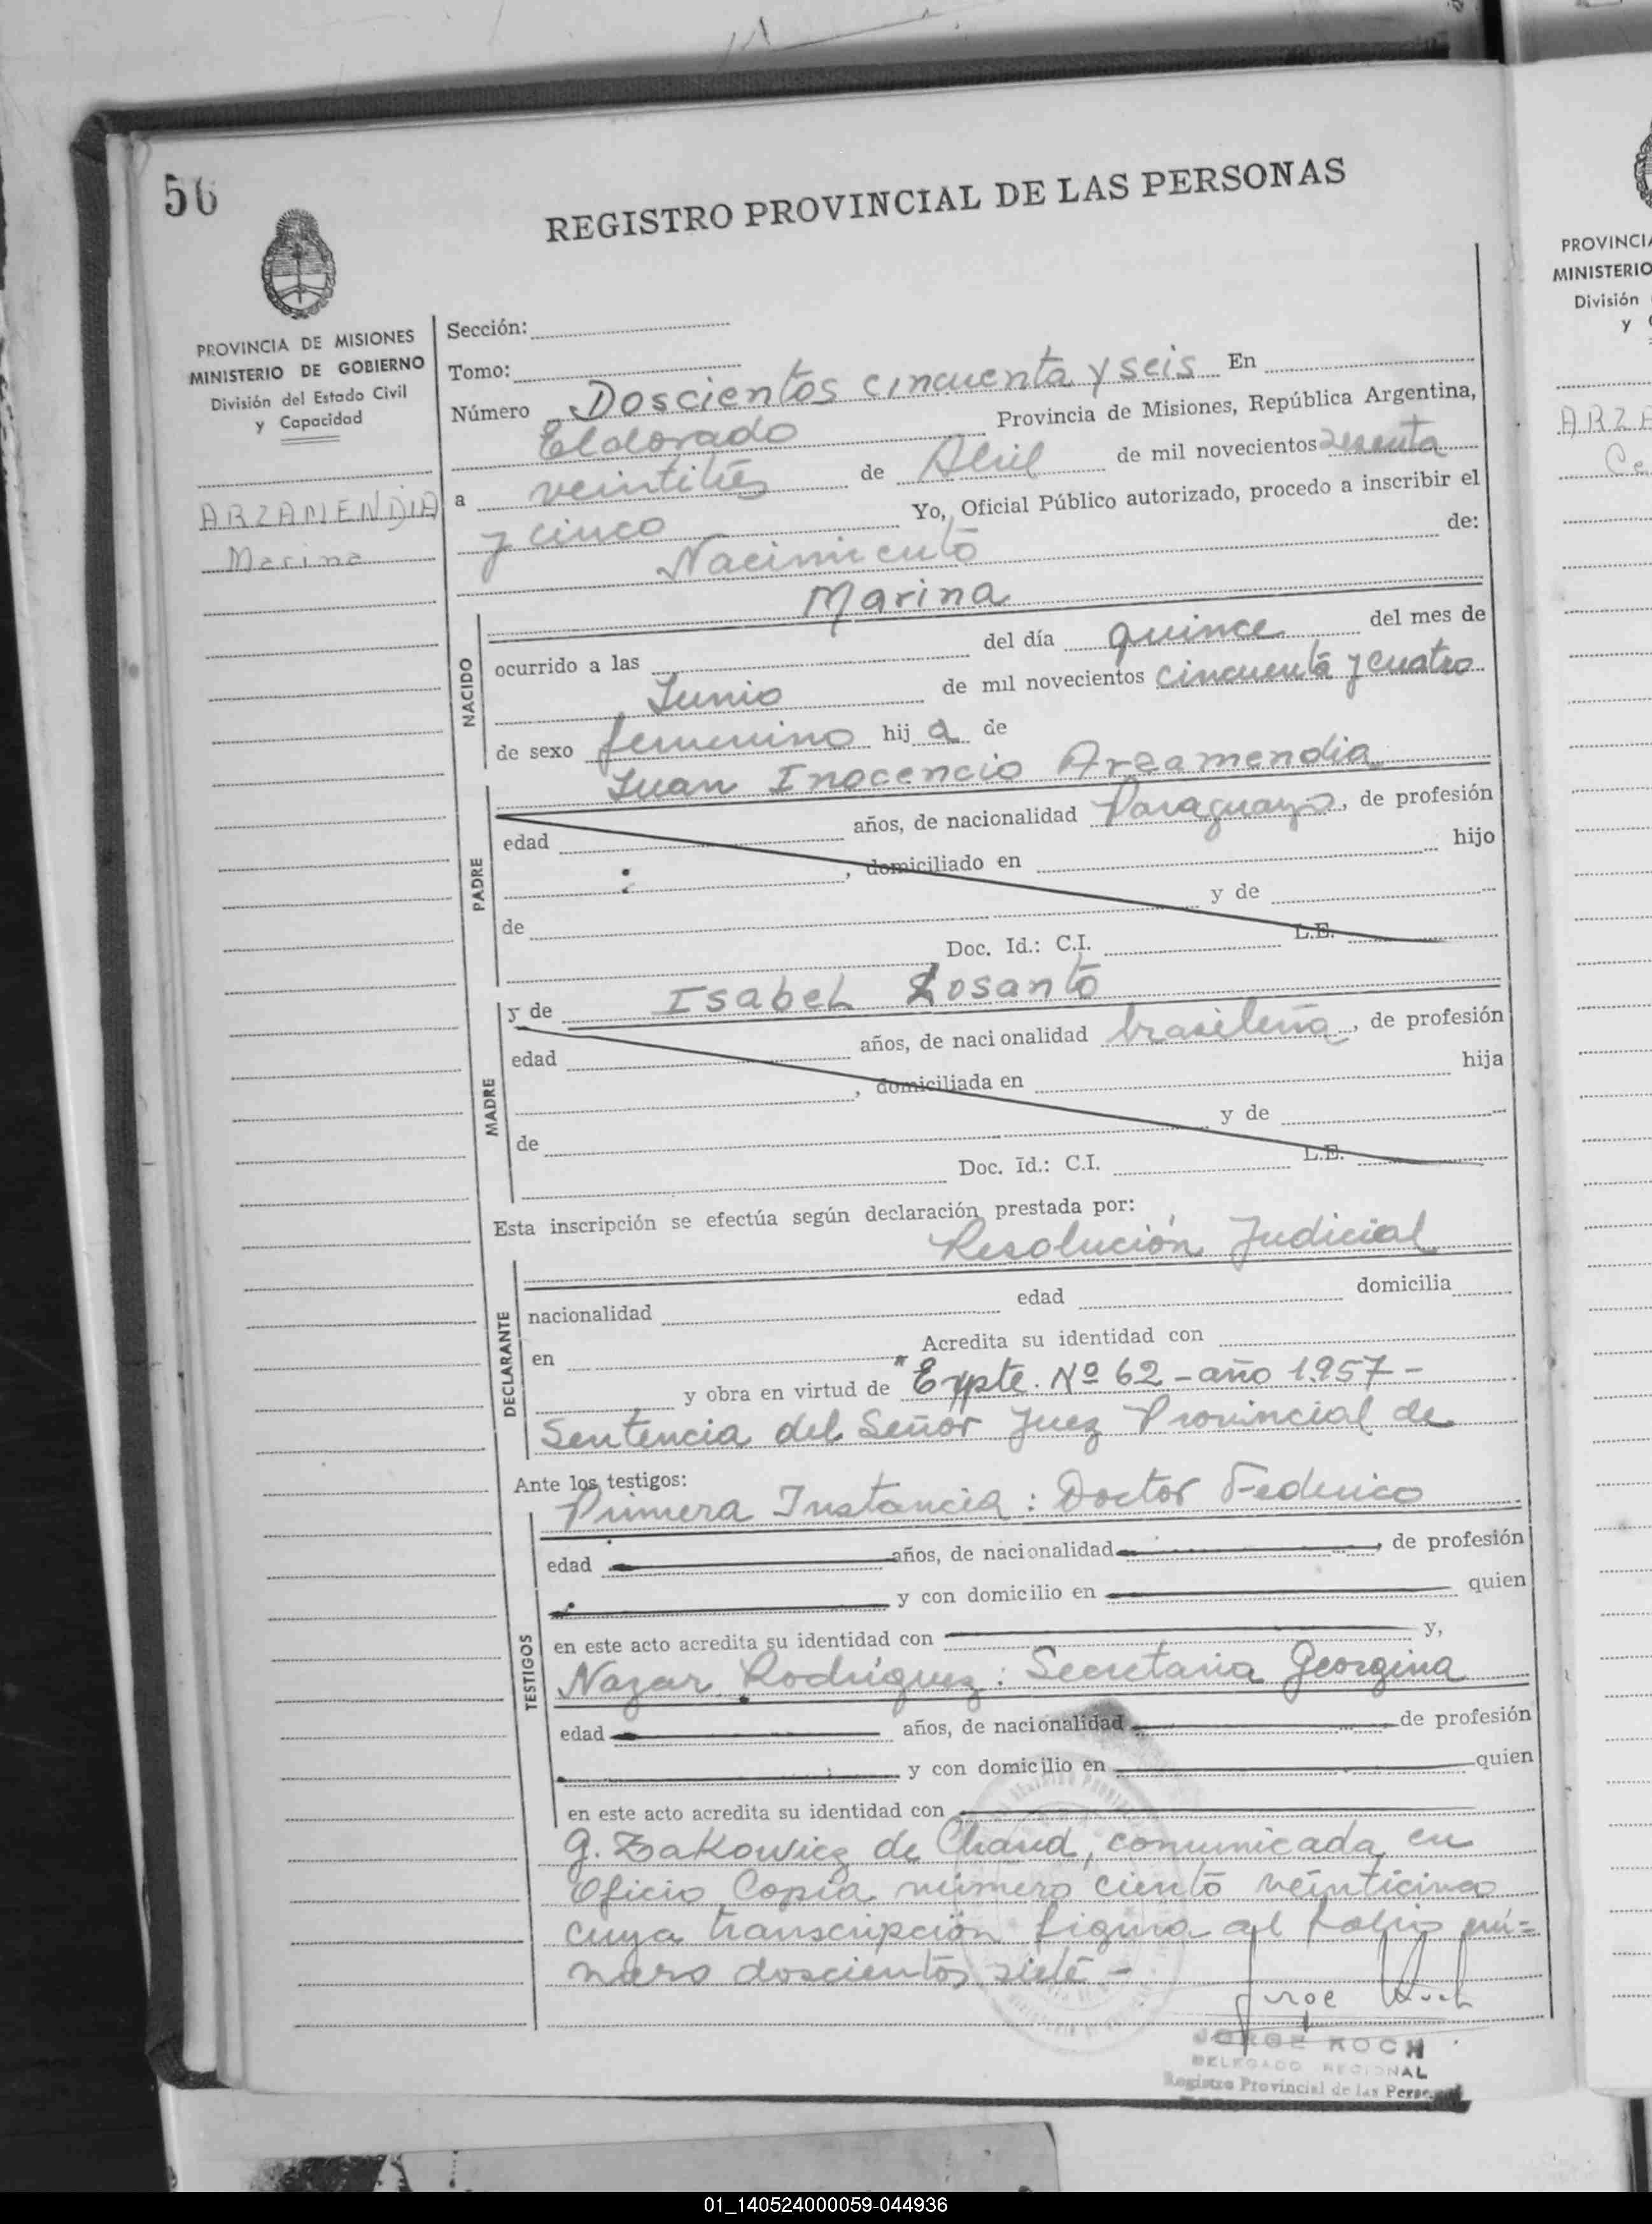 56
REGISTRO PROVINCIAL DE LAS PERSONAS
PROVINCIA DE MISIONES
MINISTERIO DE GOBIERNO
División del Estado Civil
y Capacidad
ARZAMENDIA
Marina
Sección:
Tomo:
Número Doscientos cincuenta y seis En
Eldorado Provincia de Misiones, República Argentina,
a veintitrés de Abril de mil novecientos sesenta
y cinco Yo, Oficial Público autorizado, procedo a inscribir el
Nacimiento de:
NACIDO
Marina
ocurrido a las del día quince del mes de
Junio de mil novecientos cincuenta y cuatro
de sexo femenino hija de
PADRE
Juan Inocencio Arzamendia
edad años, de nacionalidad Paraguayo, de profesión
, domiciliado en hijo
de y de
Doc. Id.: C.I. L.E.
MADRE
y de Isabel Losanto
edad años, de nacionalidad brasileña, de profesión
, domiciliada en hija
de y de
Doc. Id.: C.I. L.E.
Esta inscripción se efectúa según declaración prestada por:
DECLARANTE
Resolución Judicial
nacionalidad edad domicilia
en Acredita su identidad con
y obra en virtud de "Expte. Nº 62 - año 1.957 -
Sentencia del Señor Juez Provincial de
Ante los testigos:
TESTIGOS
Primera Instancia: Doctor Federico
edad años, de nacionalidad, de profesión
y con domicilio en quien
en este acto acredita su identidad con y,
Nazar Rodríguez: Secretaria Georgina
edad años, de nacionalidad de profesión
y con domicilio en quien
en este acto acredita su identidad con
G. Zakowicz de Chaud, comunicada en
Oficio Copia número ciento veinticinco
cuya transcripción figura al folio nú=
mero doscientos siete -
Jorge Koch
JORGE KOCH
DELEGADO REGIONAL
Registro Provincial de las Personas
PROVINCIA
MINISTERIO
División
y
ARZA
01_140524000059-044936